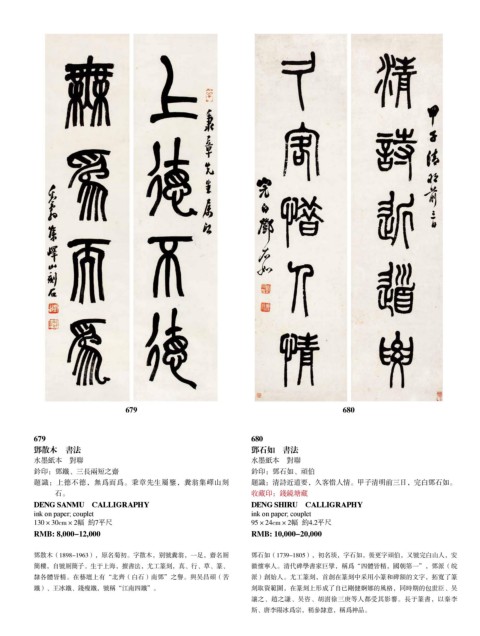 上德不德
秉章先生屬譣
無爲而爲
糞翁集嶧山刻石
清詩近道要
甲子清明前三日
久客惜人情
完白鄧石如
679
680
679
鄧散木 書法
水墨紙本 對聯
鈐印：鄧鐵、三長兩短之齋
題識：上德不德，無爲而爲。秉章先生屬鑒，糞翁集嶧山刻
石。
DENG SANMU CALLIGRAPHY
ink on paper; couplet
130×30cm×2幅 約7平尺
RMB: 8,000–12,000
鄧散木（1898–1963），原名菊初，字散木，別號糞翁，一足，齋名厠
簡樓，自號厠簡子。生于上海，擅書法，尤工篆刻，真、行、草、篆、
隸各體皆精。在藝壇上有“北齊（白石）南鄧”之譽。與吴昌碩（苦
鐵）、王冰鐵、錢瘦鐵，號稱“江南四鐵”。
680
鄧石如 書法
水墨紙本 對聯
鈐印：鄧石如、頑伯
題識：清詩近道要，久客惜人情。甲子清明前三日，完白鄧石如。
收藏印：錢鏡塘藏
DENG SHIRU CALLIGRAPHY
ink on paper; couplet
95×24cm×2幅 約4.2平尺
RMB: 10,000–20,000
鄧石如（1739–1805），初名琰，字石如，後更字頑伯，又號完白山人，安
徽懷寧人。清代碑學書家巨擘，稱爲“四體皆精，國朝第一”。鄧派（皖
派）創始人。尤工篆刻，首創在篆刻中采用小篆和碑額的文字，拓寬了篆
刻取資範圍，在篆刻上形成了自己剛健婀娜的風格，同時期的包世臣、吴
讓之、趙之謙、吴咨、胡澍徐三庚等人都受其影響。長于篆書，以秦李
斯、唐李陽冰爲宗，稍參隸意，稱爲神品。